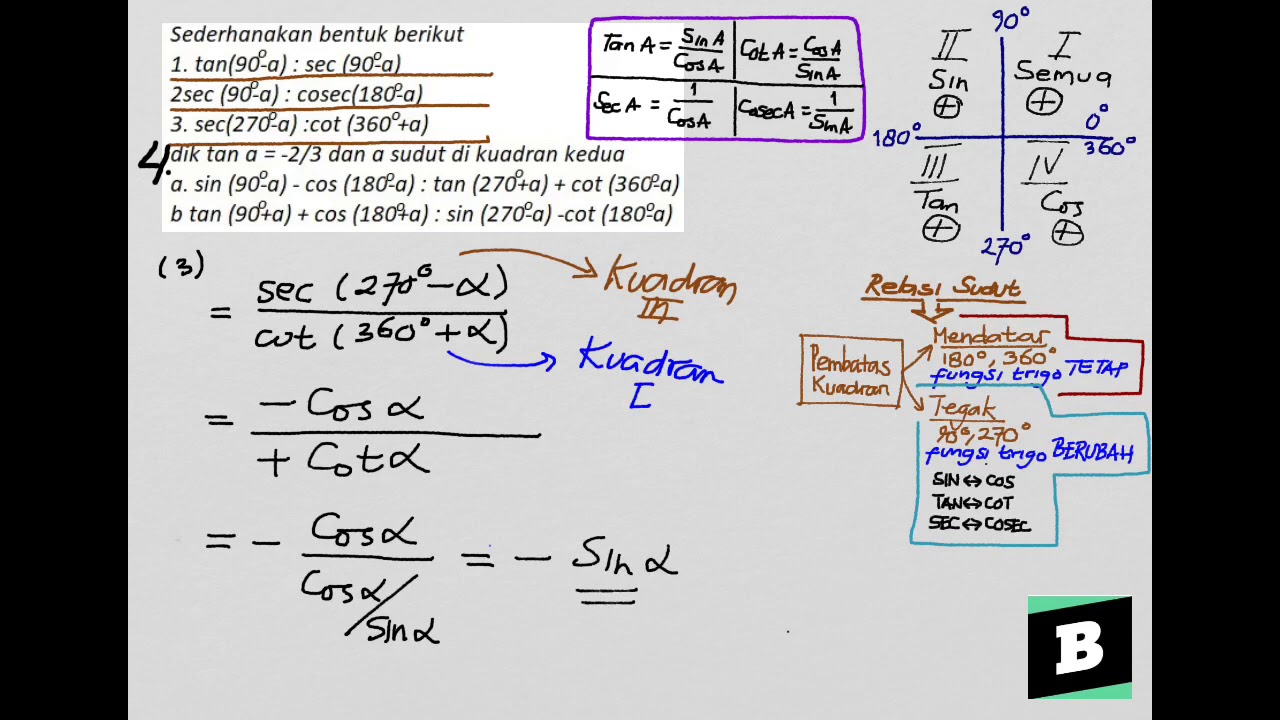 Sederhanakan bentuk berikut
1. tan(90°-a) : sec (90°-a)
2sec (90°-a) : cosec(180°-a)
3. sec(270°-a) :cot (360°+a)
4.
dik tan a = -2/3 dan a sudut di kuadran kedua
a. sin (90°-a) - cos (180°-a) : tan (270°+a) + cot (360°-a)
b tan (90°+a) + cos (180°+a) : sin (270°-a) -cot (180°-a)
Tan A = Sin A / Cos A
Cot A = Cos A / Sin A
Sec A = 1 / Cos A
Cosec A = 1 / Sin A
90°
II
Sin
+
I
Semua
+
180°
0°
360°
III
Tan
+
IV
Cos
+
270°
(3)
= sec (270° - α) / cot (360° + α)
Kuadran
III
Kuadran
I
= - Cos α / + Cot α
= - Cos α / Cos α / Sin α = - Sin α
Relasi Sudut
Pembatas
Kuadran
Mendatar
180°, 360°
fungsi trigo TETAP
Tegak
90°, 270°
fungsi trigo BERUBAH
SIN ↔ COS
TAN ↔ COT
SEC ↔ COSEC
B